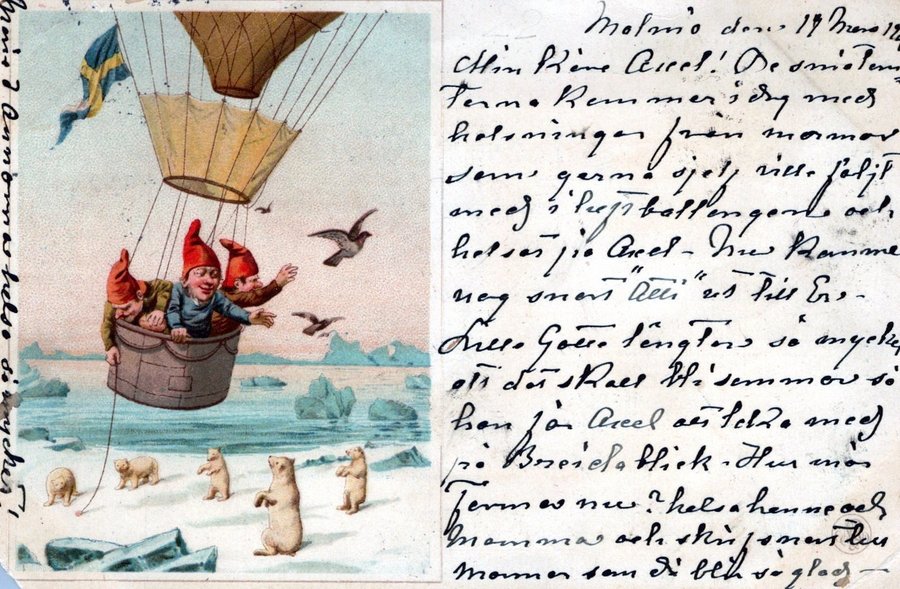 Malmö den 17 Mars 19
Min käre Axel! De små tom
tarna kommer i dag med
helsningar från mormor
som gerna sjelf ville följt
med i luftballongen och
helsat på Axel - Nu kommer
nog snart "Atti" ut till Er. -
Lille Gösta längtar så mycket
att det skall bli sommar så
han får Axel att leka med
på Breidablick - Hur mår
farmor nu? helsa henne och
Mamma och skrif snart till
mormor som då blir så glad -
helsa så mycket